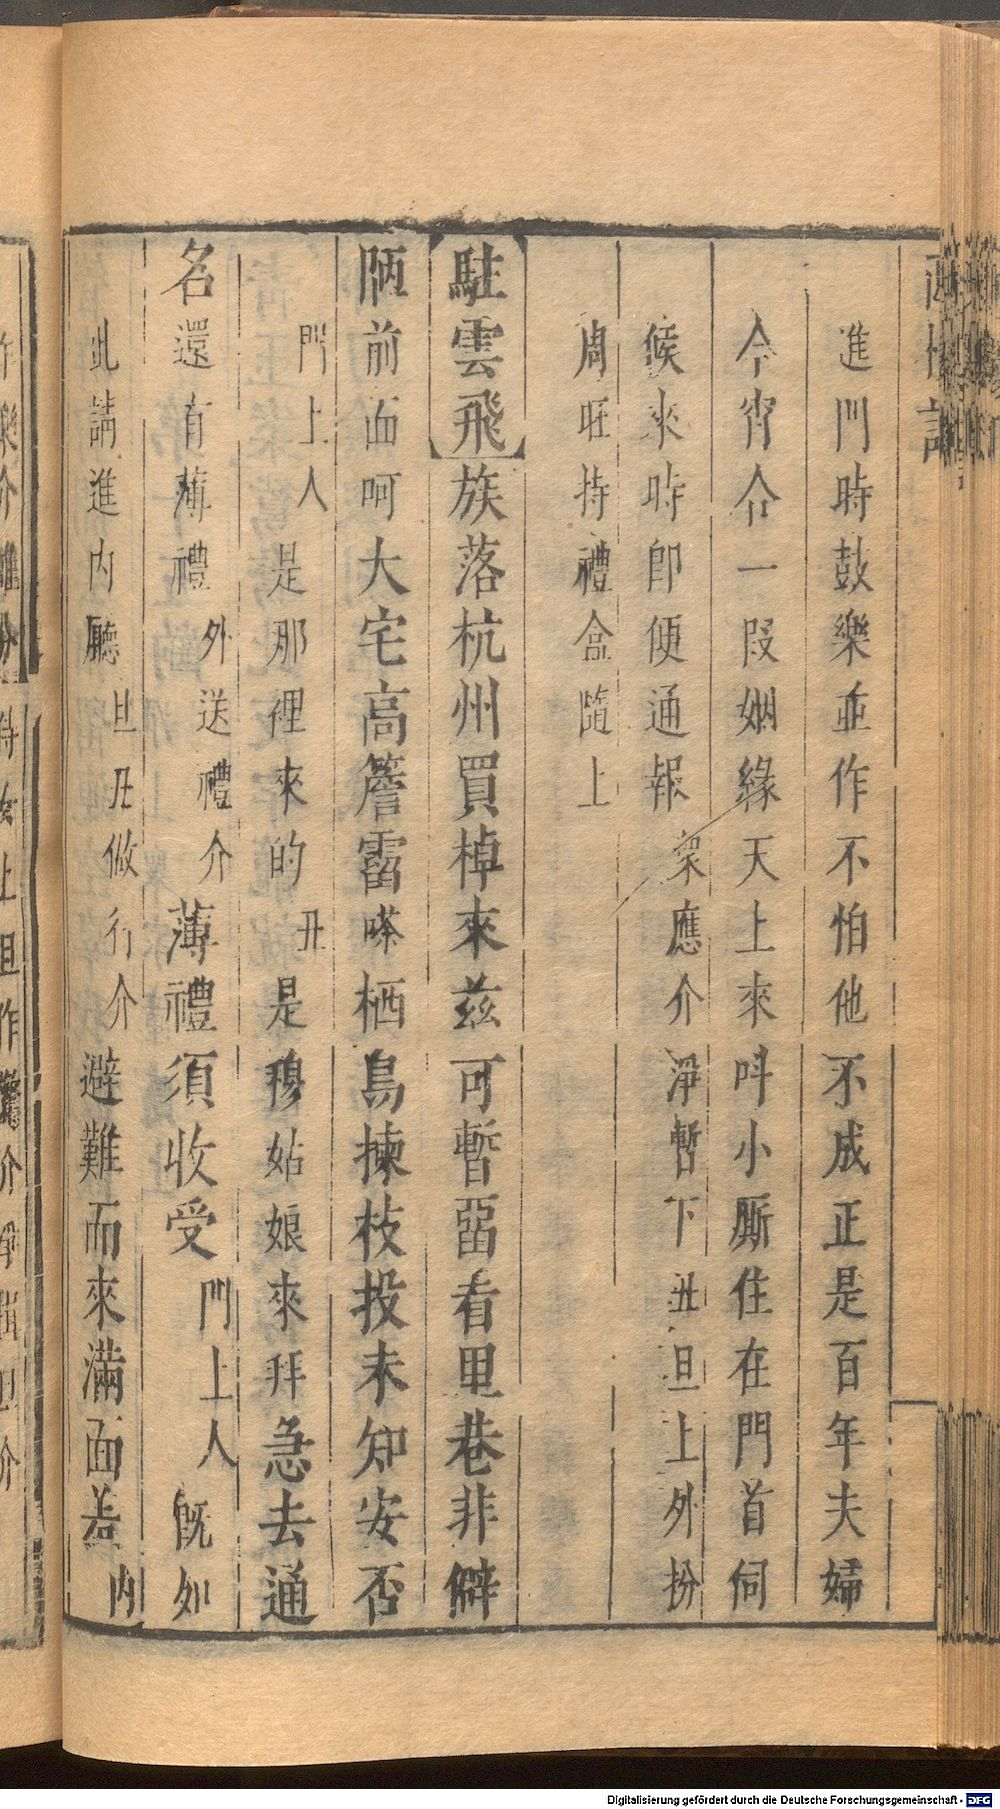 進門時鼓樂並作不怕他不成正是百年夫婦
今宵合一段姻緣天上來叫小廝住在門首伺
候來時即便通報衆應介淨暫下丑旦上外扮
周旺持禮盒隨上
駐雲飛族落杭州買棹來茲可暫畱看里巷非僻
陋前面呵大宅高簷霤嗏栖鳥揀枝投未知安否
門上人是那裡來的丑是穆姑娘來拜急去通
名還有薄禮外送禮介薄禮須收受門上人既如
此請進內廳旦丑做行介避難而來滿面羞內
Digitalisierung gefördert durch die Deutsche Forschungsgemeinschaft - DFG